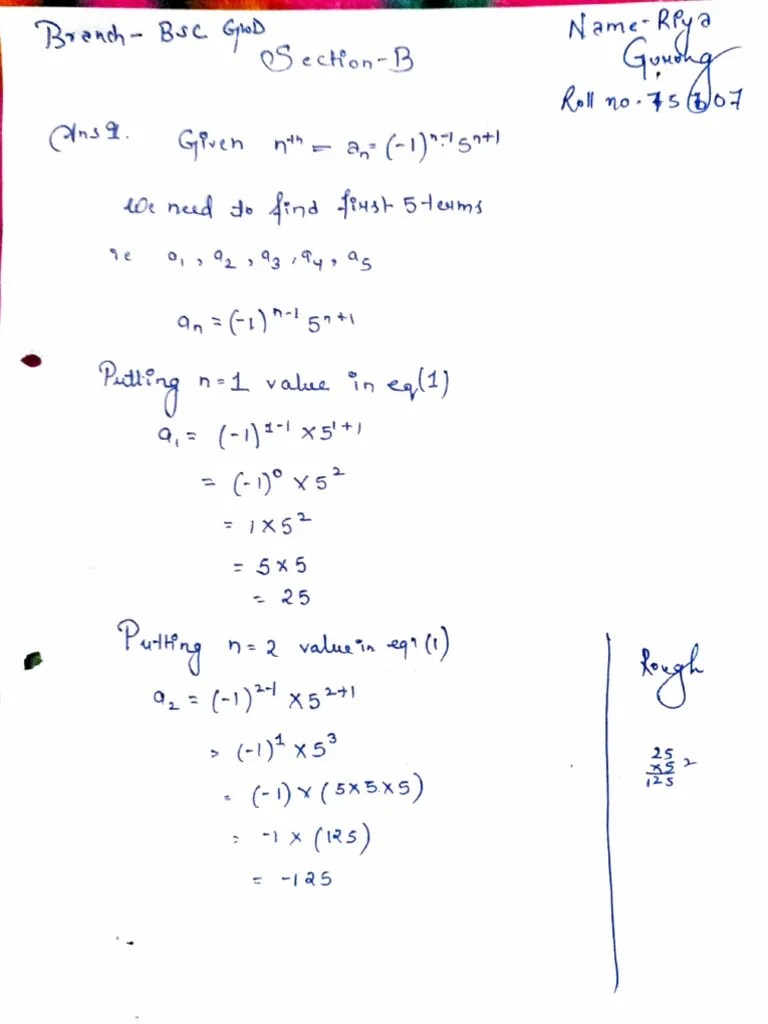 Branch - BSC GWD
Section-B
Name- Riya
Gurung
Roll no. 75607
Ans 1. Given nth = an = (-1)^n-1 5^n+1
We need to find first 5 terms
ie a1, a2, a3, a4, a5
an = (-1)^n-1 5^n+1
Putting n=1 value in eq(1)
a1 = (-1)^1-1 × 5^1+1
= (-1)^0 × 5^2
= 1×5^2
= 5×5
= 25
Putting n=2 value in eqn (1)
a2 = (-1)^2-1 × 5^2+1
= (-1)^1 × 5^3
= (-1) × (5×5×5)
= -1 × (125)
= -125
Rough
25 2
×5
125